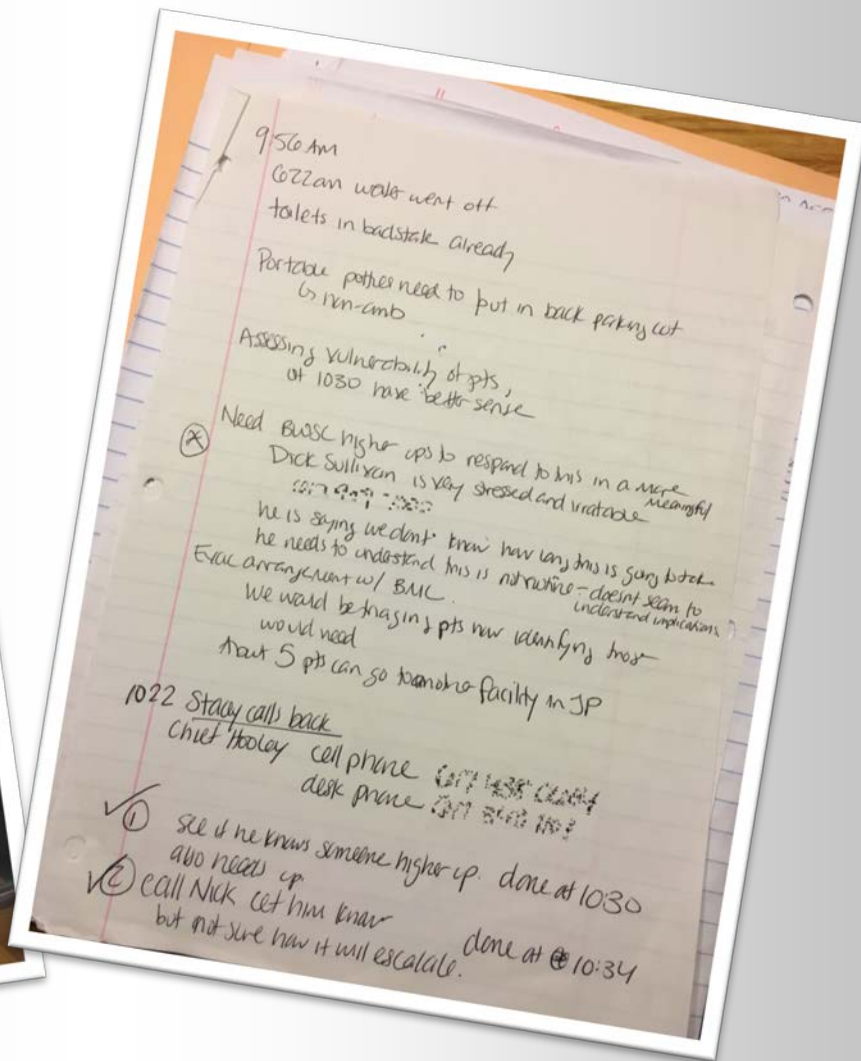 9:56 AM
water went off
toilets in bad state already
Portable potties need to put in back parking lot
↳ non-amb
Assessing vulnerability of pts,
at 1030 have better sense
Need BWSC higher ups to respond to this in a more
meaningful
Dick Sullivan is very stressed and irratable
he is saying we dont know how long this is going to take
he needs to understand this is not routine - doesnt seem to
understand implications
Evac arrangement w/ BMC.
We would be triaging pts now identifying those
would need
About 5 pts can go to another facility in JP
1022 Stacy calls back
Chief Hooley cell phone
desk phone
① see if he knows someone higher up. done at 1030
also heads up
② call Nick let him know
but not sure how it will escalate. done at 10:34